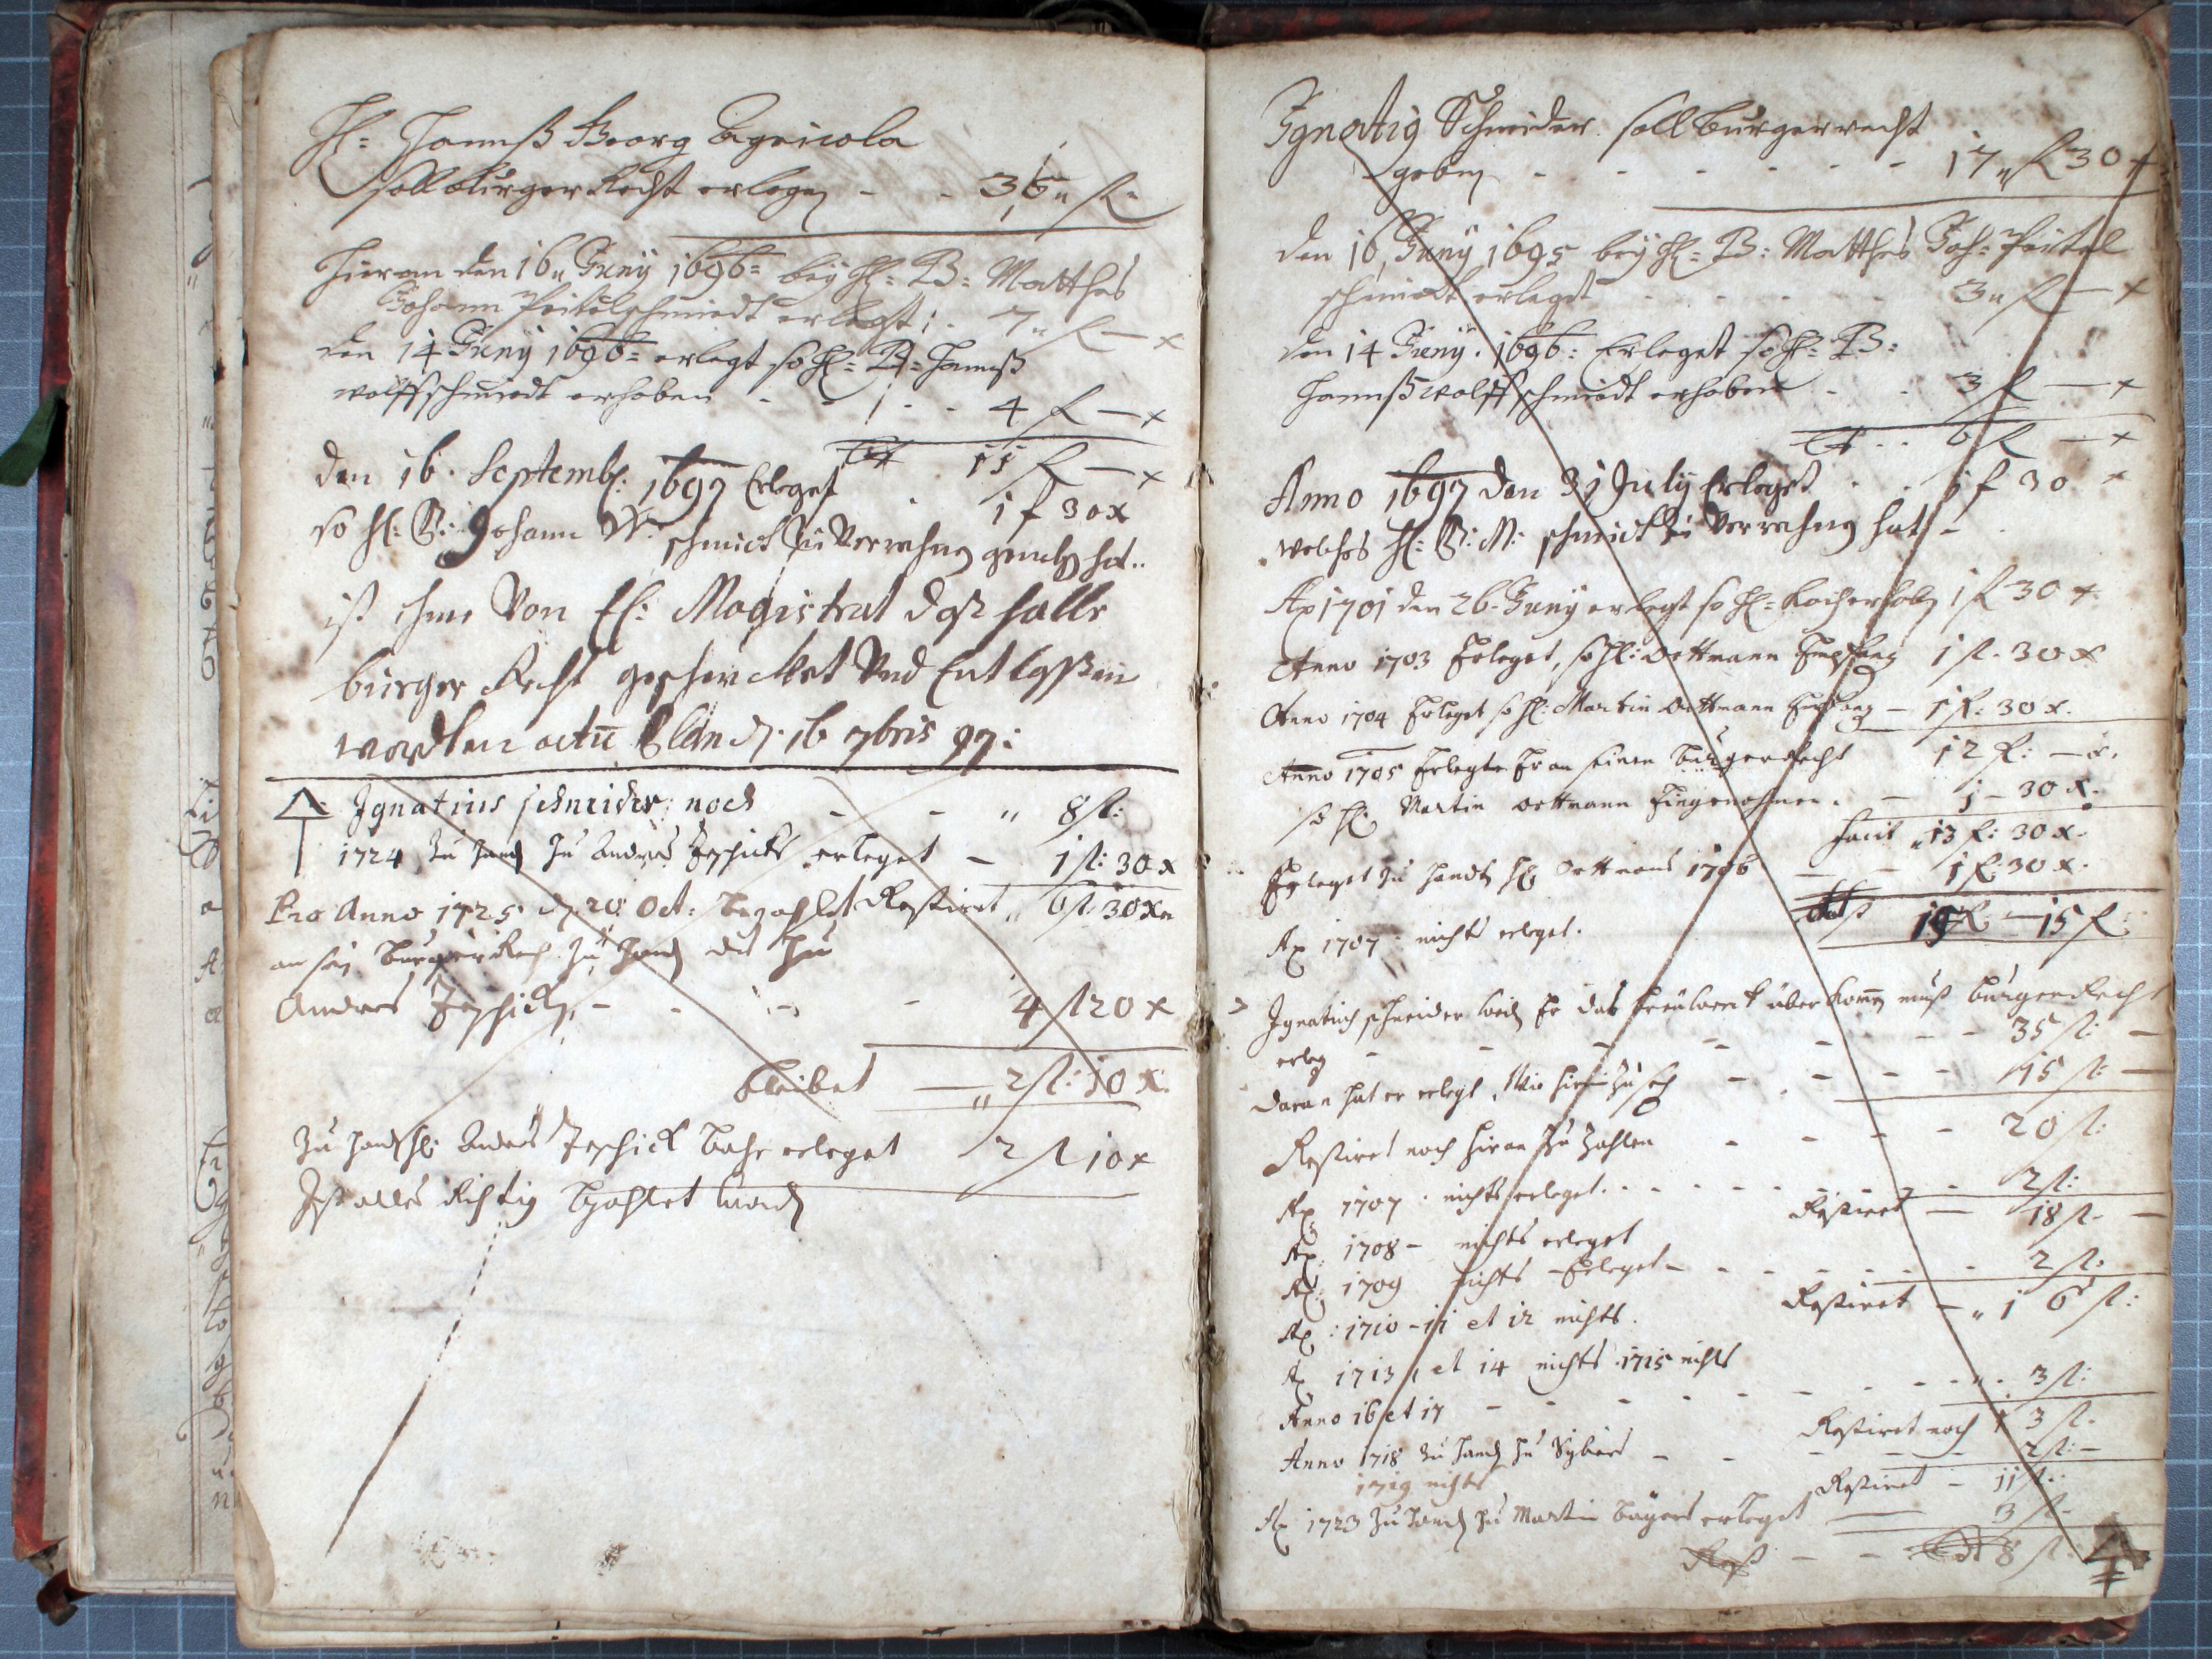 H: Hannß Georg Agricola
soll Burger Recht erlegen - - 35 fl.
hieran den 16 Juny 1696 bey H: B: Matthes
Johann Peitelschmiedt erlegt: 7 fl — x
den 14 Juny 1696 erlegt so H: B: Hannß
wolffschmiedt erhoben - - - 4 fl — x
11 fl — x
den 16. Septemb: 1697 Erleget . 1 f 30 x
so H: B: Johann W: schmidt zu Verrechnen hat..
ist ihme Von H: Magistrat
burger Recht geschencket Vnd Entlaßen
worden 16 7bris 97:
Ignatius schneider noch - - 8 fl:
1724 zu hand H: Andres Jeschicks erleget - 1 fl: 30 x
Pro Anno 1725 d. 20 Oct: bezahlet Restiret 6 fl: 30 x
an sein burgerRech zu hand des H:
Andres Jeschick - - - 4 fl 20 x
bleibet — 2 fl: 10 x.
Zu hand H: Andres Jeschick bahr erleget 2 fl 10 x
Ist alles Richtig bezahlet word
Ignatig Schneider soll burgerrecht
geben - - - - - 17 fl 30 x
den 16 Juny 1695 bey H: B: Matthes Joh: Peitel
schmiedt erleget - - - 3 fl — x
den 14 Juny. 1696: Erleget so H: B:
Hannß wolffschmiedt erhoben - - 3 fl — x
6 fl — x
Anno 1697 den 31 July Erleget . . 1 f 30 x
welches H: B: M: schmidt zu Verrechnen hat -
Ao 1701 den 26. Juny erlegt so H: Koch erhoben 1 fl 30 x
Anno 1703 Erleget, so H: Oettmann Empfang 1 fl. 30 x
Anno 1704 Erleget so H: Martin Oettmann Empfang - 1 fl: 30 x.
12 fl: — x.
Anno 1705 Erlegte Er an seinen burgerRecht
so H: Martin Oettmann Eingenohmen. - 1 - 30 x.
facit 13 fl: 30 x.
Erleget zu handt H: Oettmans 1706 — — 1 fl: 30 x.
15 fl:
Ao 1707 . nichts erleget.
Ignatius schneider weil Er das Creülwerk überkomen muß burgerRecht
erleg - - - - - 35 fl: —
daran hat er erlegt, wie hierin zu seh - - - 15 fl: —
Restiret noch hieran zu zahlen - - - - 20 fl:
Ao 1707 . nichts erleget. - - - - - 2 fl:
Restiret — 18 fl. —
Ao: 1708 - nichts erleget
Ao: 1709 nichts - Erleget - - - - - 2 fl:
Restiret - 16 fl:
Ao: 1710 - 11 et 12 nichts.
Ao 1713, et 14 nichts 1715 nichts
Anno 16 et 17 - - - - - 3 fl:
Restiret noch 13 fl.
Anno 1718 zu hand H: - - - 2 fl: -
1719 nichts
Restiret - 11 fl:
Ao 1723 zu hand H: Martin erleget — 3 fl-
Rest - - 8 fl: